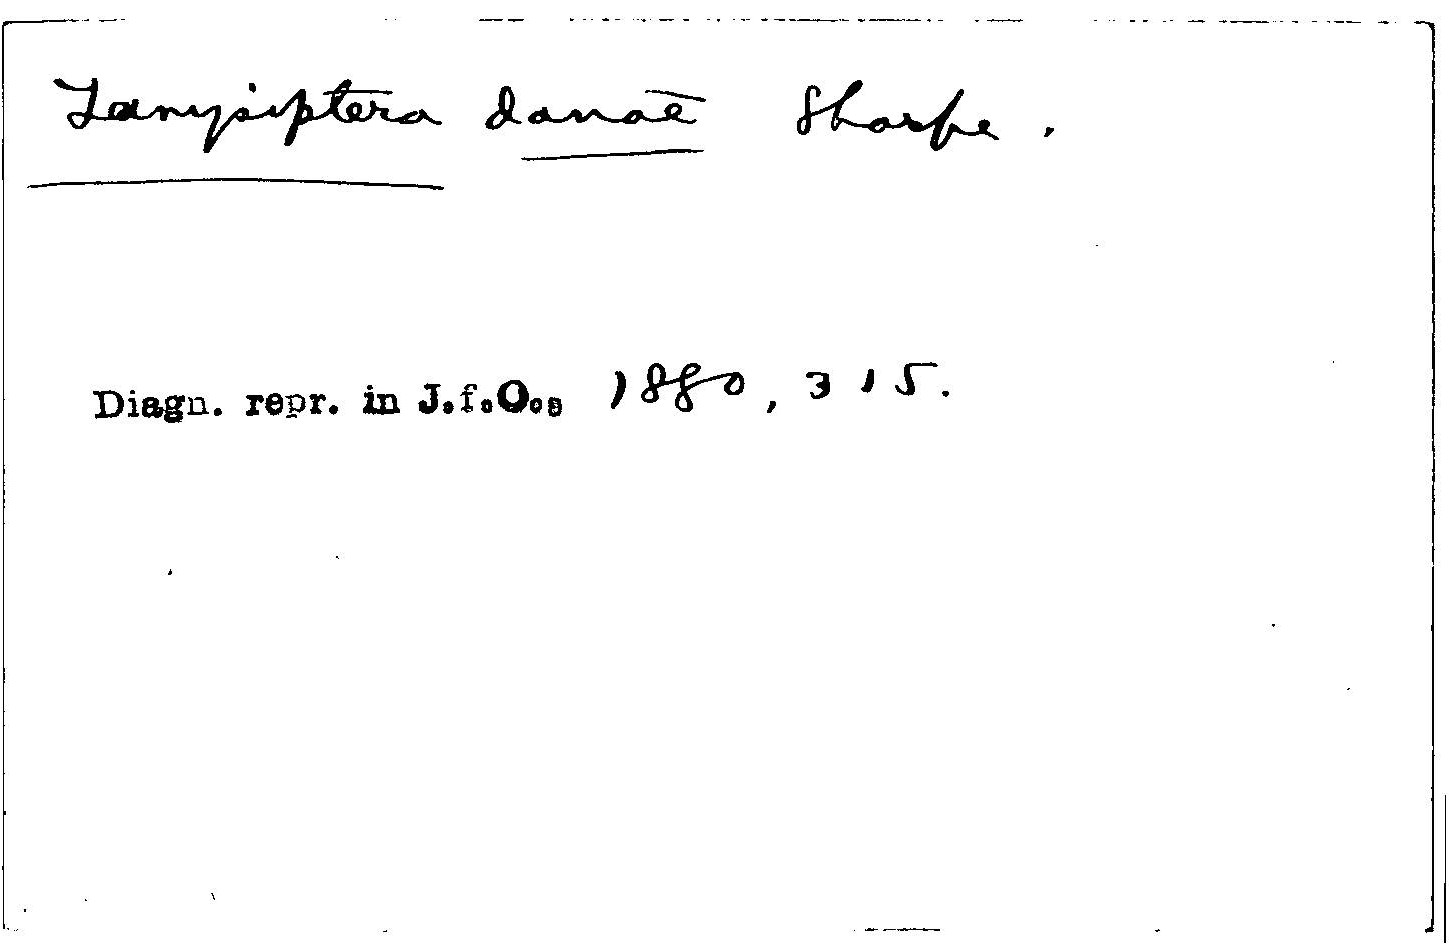 Tanysiptera danaë Sharpe.
Diagn. repr. in J.f.O., 1880, 315.